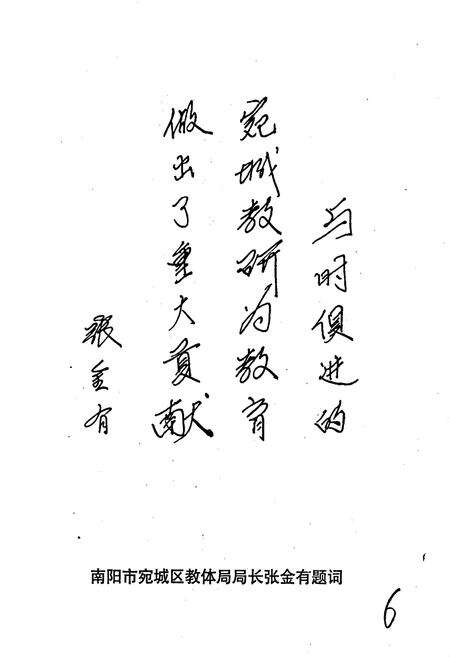 与时俱进的
宛城教研为教育
做出了重大贡献
张金有
南阳市宛城区教体局局长张金有题词
6